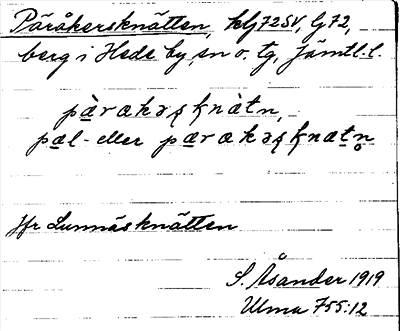 Päråkersknätten, klg72SV, G72,
berg i Hede by, sn o. tg, Jämtl.l.
pàrakəʂknàtn,
pal- eller parakəʂknatn̥
Jfr Lunnäsknätten
S. Åsander 1919
Ulma 755:12